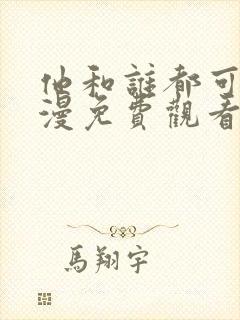 他和誰都可
漫免費觀看
馬翔宇